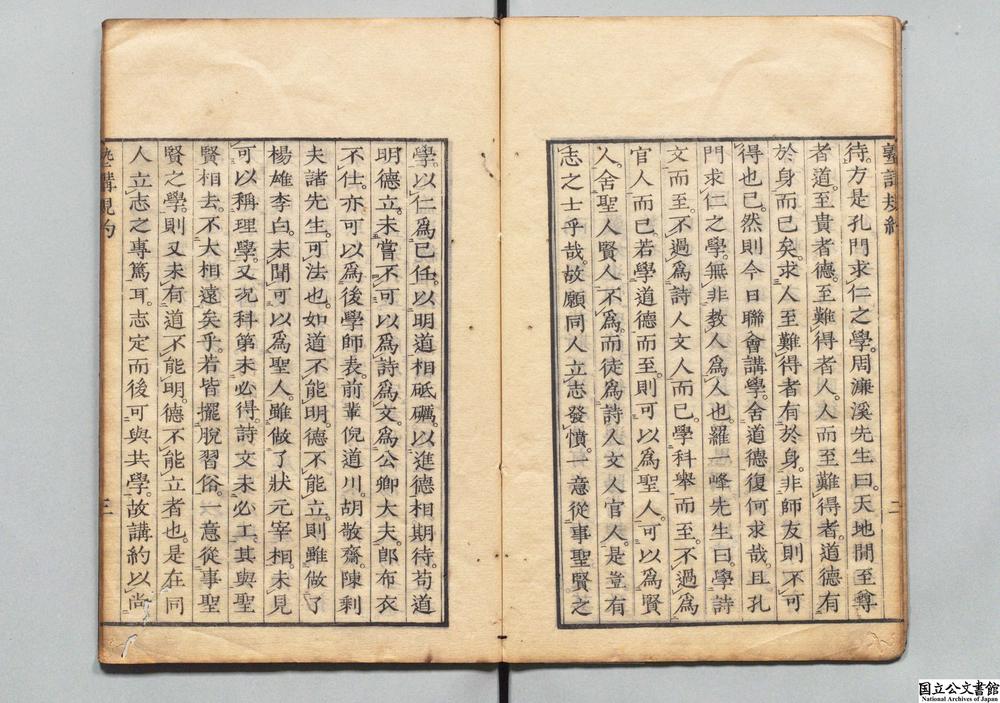 塾講規約
二
待。方是孔門求仁之學。周濂溪先生曰。天地間至尊
者道。至貴者德。至難得者人。人而至難得者。道德有
於身而已矣。求人至難得者有於身。非師友則不可
得也已。然則今日聯會講學。舍道德復何求哉。且孔
門求仁之學。無非教人爲人也。羅一峰先生曰。學詩
文而至。不過爲詩人文人而已。學科舉而至。不過爲
官人而已。若學道德而至。則可以爲聖人。可以爲賢
人。舍聖人賢人不爲。而徒爲詩人文人官人。是豈有
志之士乎哉。故願同人立志發憤。一意從事聖賢之
學。以仁爲已任。以明道相砥礪。以進德相期待。苟道
明德立。未嘗不可以爲詩爲文。爲公卿大夫。郎布衣
不仕。亦可以爲後學師表。前輩倪道川。胡敬齋。陳剩
夫諸先生。可法也。如道不能明。德不能立。則雖做了
楊雄李白。未聞可以爲聖人。雖做了狀元宰相。未見
可以稱理學。又况科第未必得。詩文未必工。其與聖
賢相去。不大相遠矣乎。若皆擺脫習俗。一意從事聖
賢之學。則又未有道不能明。德不能立者也。是在同
人立志之專篤耳。志定而後可與共學。故講約以尚
塾講規約
三
国立公文書館
National Archives of Japan